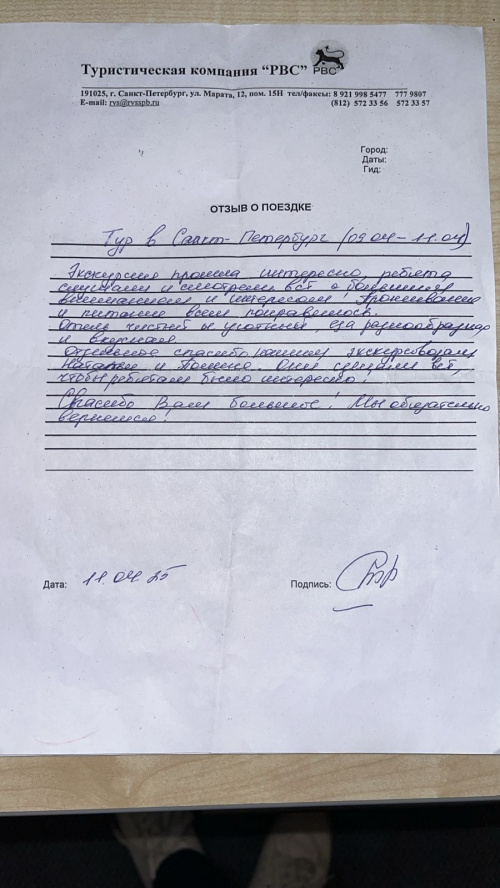 Туристическая компания “РВС” РВС
191025, г. Санкт-Петербург, ул. Марата, 12, пом. 15Н тел/факсы: 8 921 998 5477 777 9807
E-mail: rvs@rvsspb.ru (812) 572 33 56 572 33 57
Город:
Даты:
Гид:
ОТЗЫВ О ПОЕЗДКЕ
Тур в Санкт-Петербург (09.04-11.04)
Экскурсия прошла интересно, ребята
слушали и смотрели всё с большим
вниманием и интересом! Проживание
и питание всем понравилось.
Отель чистый и уютный, еда разнообразная
и вкусная.
Отдельное спасибо нашим экскурсоводам
Наталье и . Они сделали всё,
чтобы ребятам было интересно!
Спасибо Вам большое! Мы обязательно
вернемся!
Дата: 11.04.25 Подпись: